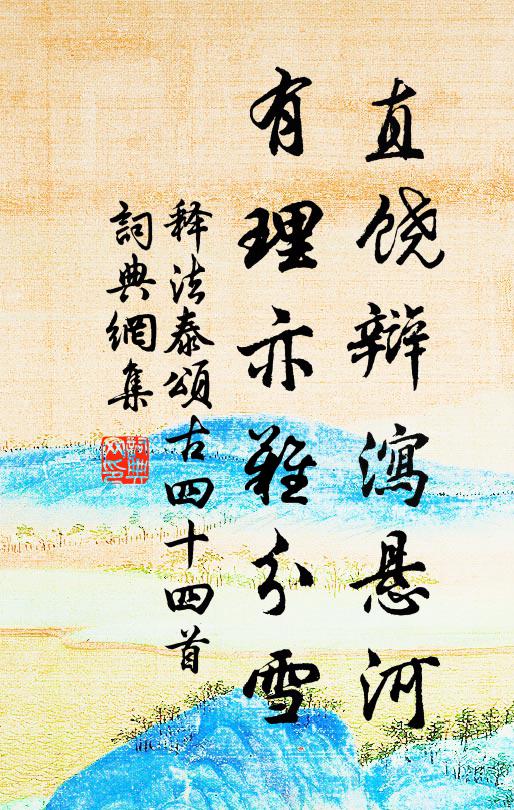 直饶辩瀉悬河
有理亦難分雪
释法泰頌古四十四首
詞典網集